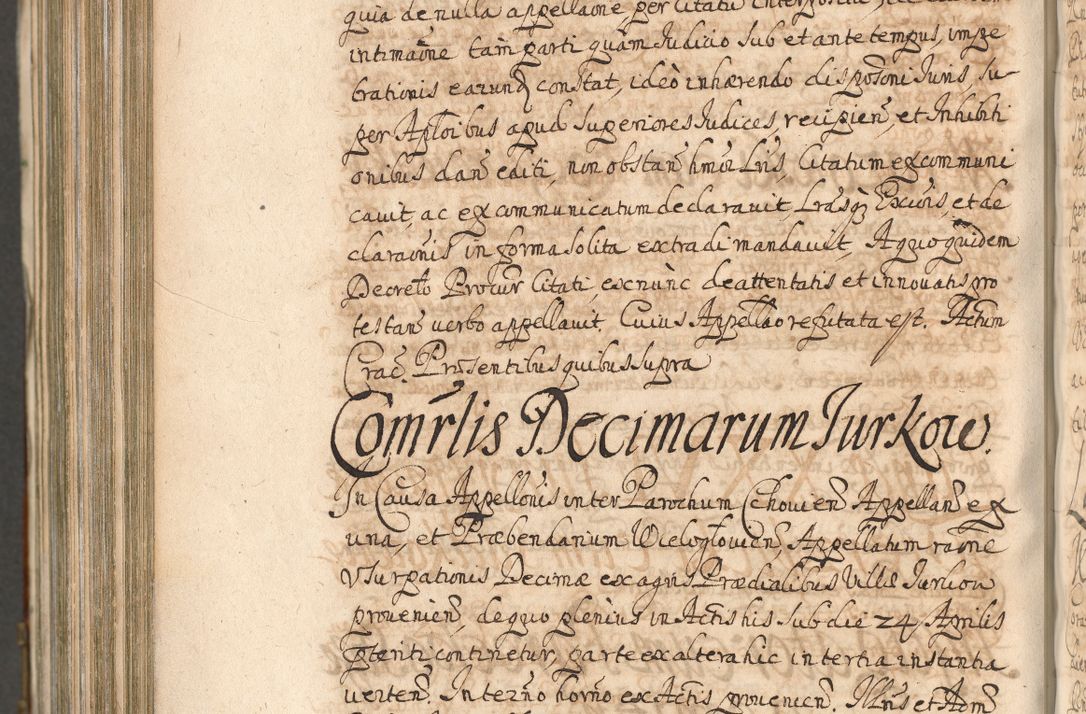 quia de nulla appellaõne, per Citatũ interposita
intimaõne tam parti quàm Iudicio sub et ante tempus, impe
trationis earund constat, ideò inhærendo disposoni Iuris, su
per Aplõibus apud Superiores Iudices, recipien̄, et Inhibiti
onibus dan̄ editi, non obstan̄ hmõi Lris, Citatum excommuni
cavit, ac excommunicatum declaravit, Lrasq; Excõis, et de
claraõnis in forma solita extradi mandavit, A quo quidem
Decreto Procur̃ Citati, ex nunc de attentatis et innovatis pro
testan̄ verbo appellavit, Cuius Appellão refutata est. Actum
Crac̃. Præsentibus quibus supra
Comr̃lis Decimarum Iurkow.
In Causa Appellonis inter Parochum Cchovien̄ Appellan̄ ex
una, et Præbendarium Wieloglovien̄, Appellatum raõne
Vsurpationis Decimæ ex agris Prædialibus Villæ Iurkow
provenien̄, de quo plenius in Actis his sub die 24 Aprilis
pteriti continetur, parte ex altera hic in tertia instantia
verten̄. In terño horño ex Actis provenien̄. Illr̃is et Adm̃